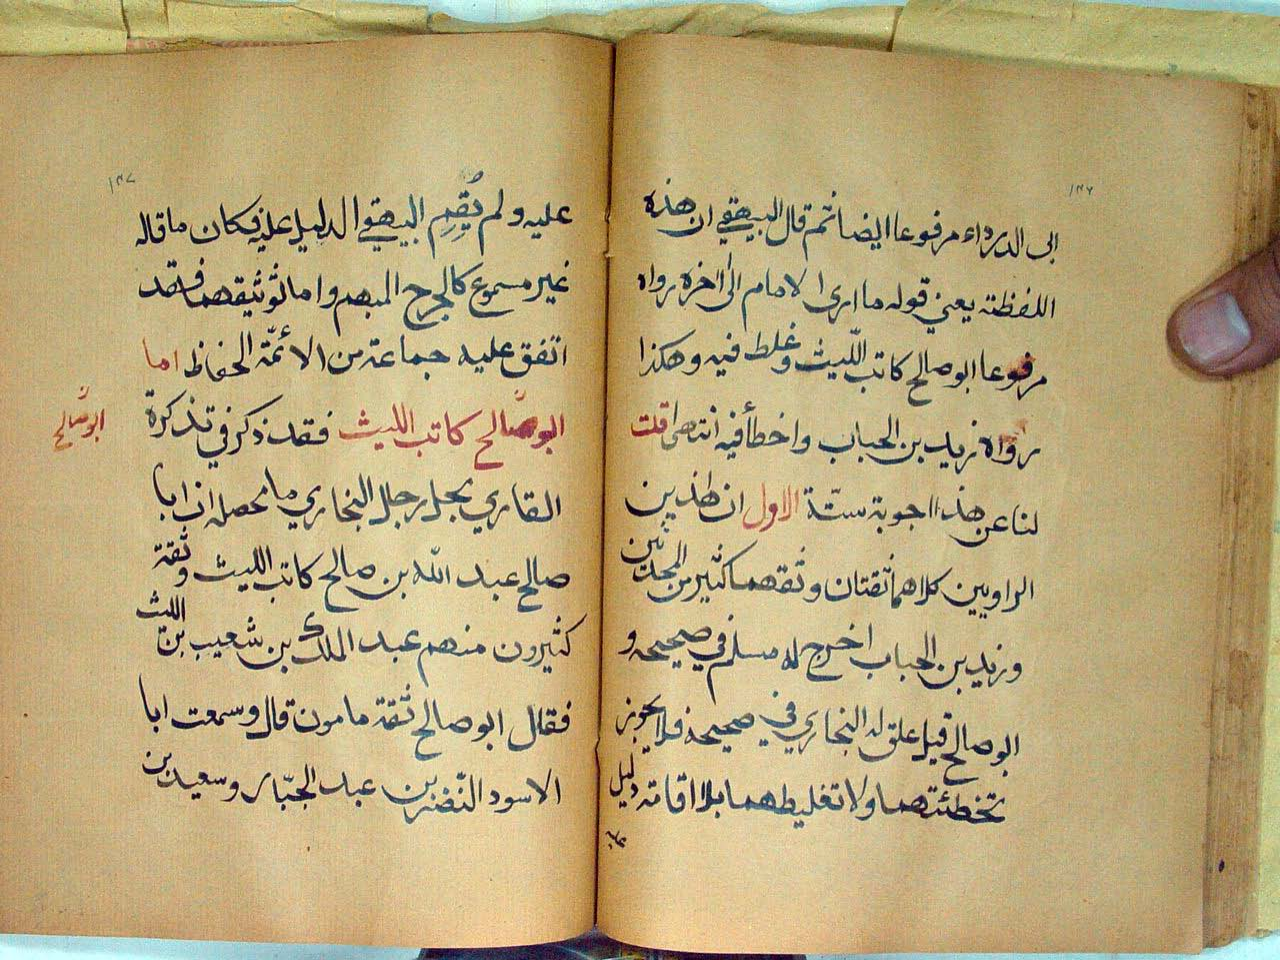 ١٣٦
ابى الدرداء مرفوعا ايضا ثم قال البيهقي ان هذه
اللفظة يعني قوله ما ارى الامام الى اخره رواه
مرفوعا ابو صالح كاتب اللّيث وغلط فيه وهكذا
رواه زيد بن الحباب واخطأ فيه انتهى قلت
لنا عن هذا اجوبة ستّة الاول ان هذين
الراويين كلاهما ثقتان وثقهما كثير من المحدثين
وزيد بن الحباب اخرج له مسلم في صحيحه و
ابو صالح قيل علق له البخاري في صحيحه فلا يجوز
تخطئتهما ولا تغليطهما بلا اقامة دليل
عليه
١٣٧
عليه ولم يُقِمِ البيهقي الدليل عليه فكان ما قاله
غير مسموع كالجرح المبهم واما توثيقهما فقد
اتفق عليه جماعة من الائمّة الحفاظ اما
ابو صالح كاتب الليث فقد ذكر في تذكرة
ابو صالح
القاري بحل رجال البخاري ما محصله ان ابا
صالح عبد اللّه بن صالح كاتب الليث وثقة
كثيرون منهم عبد الملك بن شعيب بن الليث
فقال ابو صالح ثقة مامون قال وسمعت ابا
الاسود النّضر بن عبد الجبّار وسعيد بن